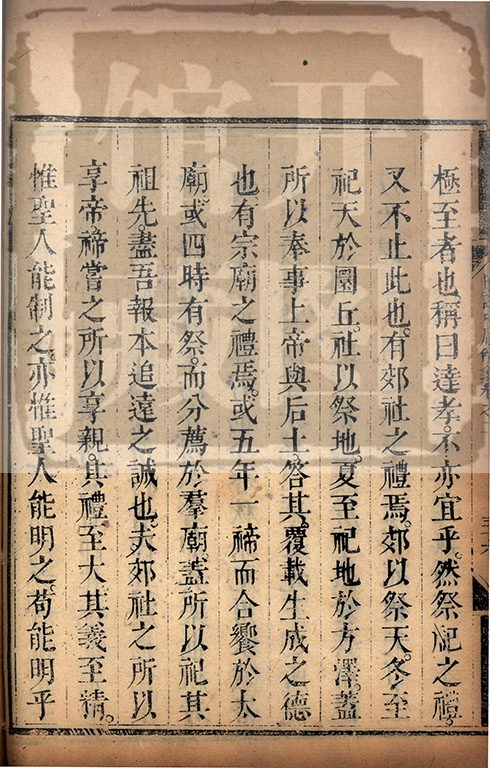 極至者也稱曰達孝。不亦宜乎。然祭祀之禮。
又不止此也。有郊社之禮焉。郊以祭天。冬至
祀天於圜丘。社以祭地。夏至祀地於方澤。蓋
所以奉事上帝與后土。答其覆載生成之德
也有宗廟之禮焉。或五年一禘而合饗於太
廟。或四時有祭。而分薦於羣廟。蓋所以祀其
祖先。盡吾報本追遠之誠也。夫郊社之所以
享帝。禘嘗之所以享親。其禮至大。其義至精。
惟聖人能制之。亦惟聖人能明之。苟能明乎